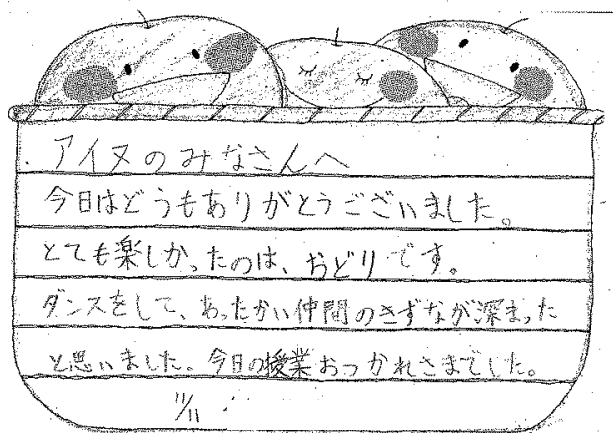 アイヌのみなさんへ
今日はどうもありがとうございました。
とても楽しかったのは、おどりです。
ダンスをして、あったかい仲間のきずなが深まった
と思いました。今日の授業おつかれさまでした。
11/11